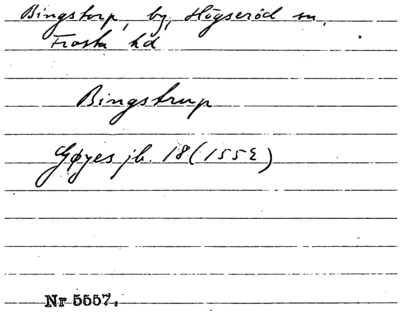 Bingstorp, by, Högseröd sn,
Frosta hd
Bingstrup
Gøyes jb. 18 (1552)
Nr 5557.